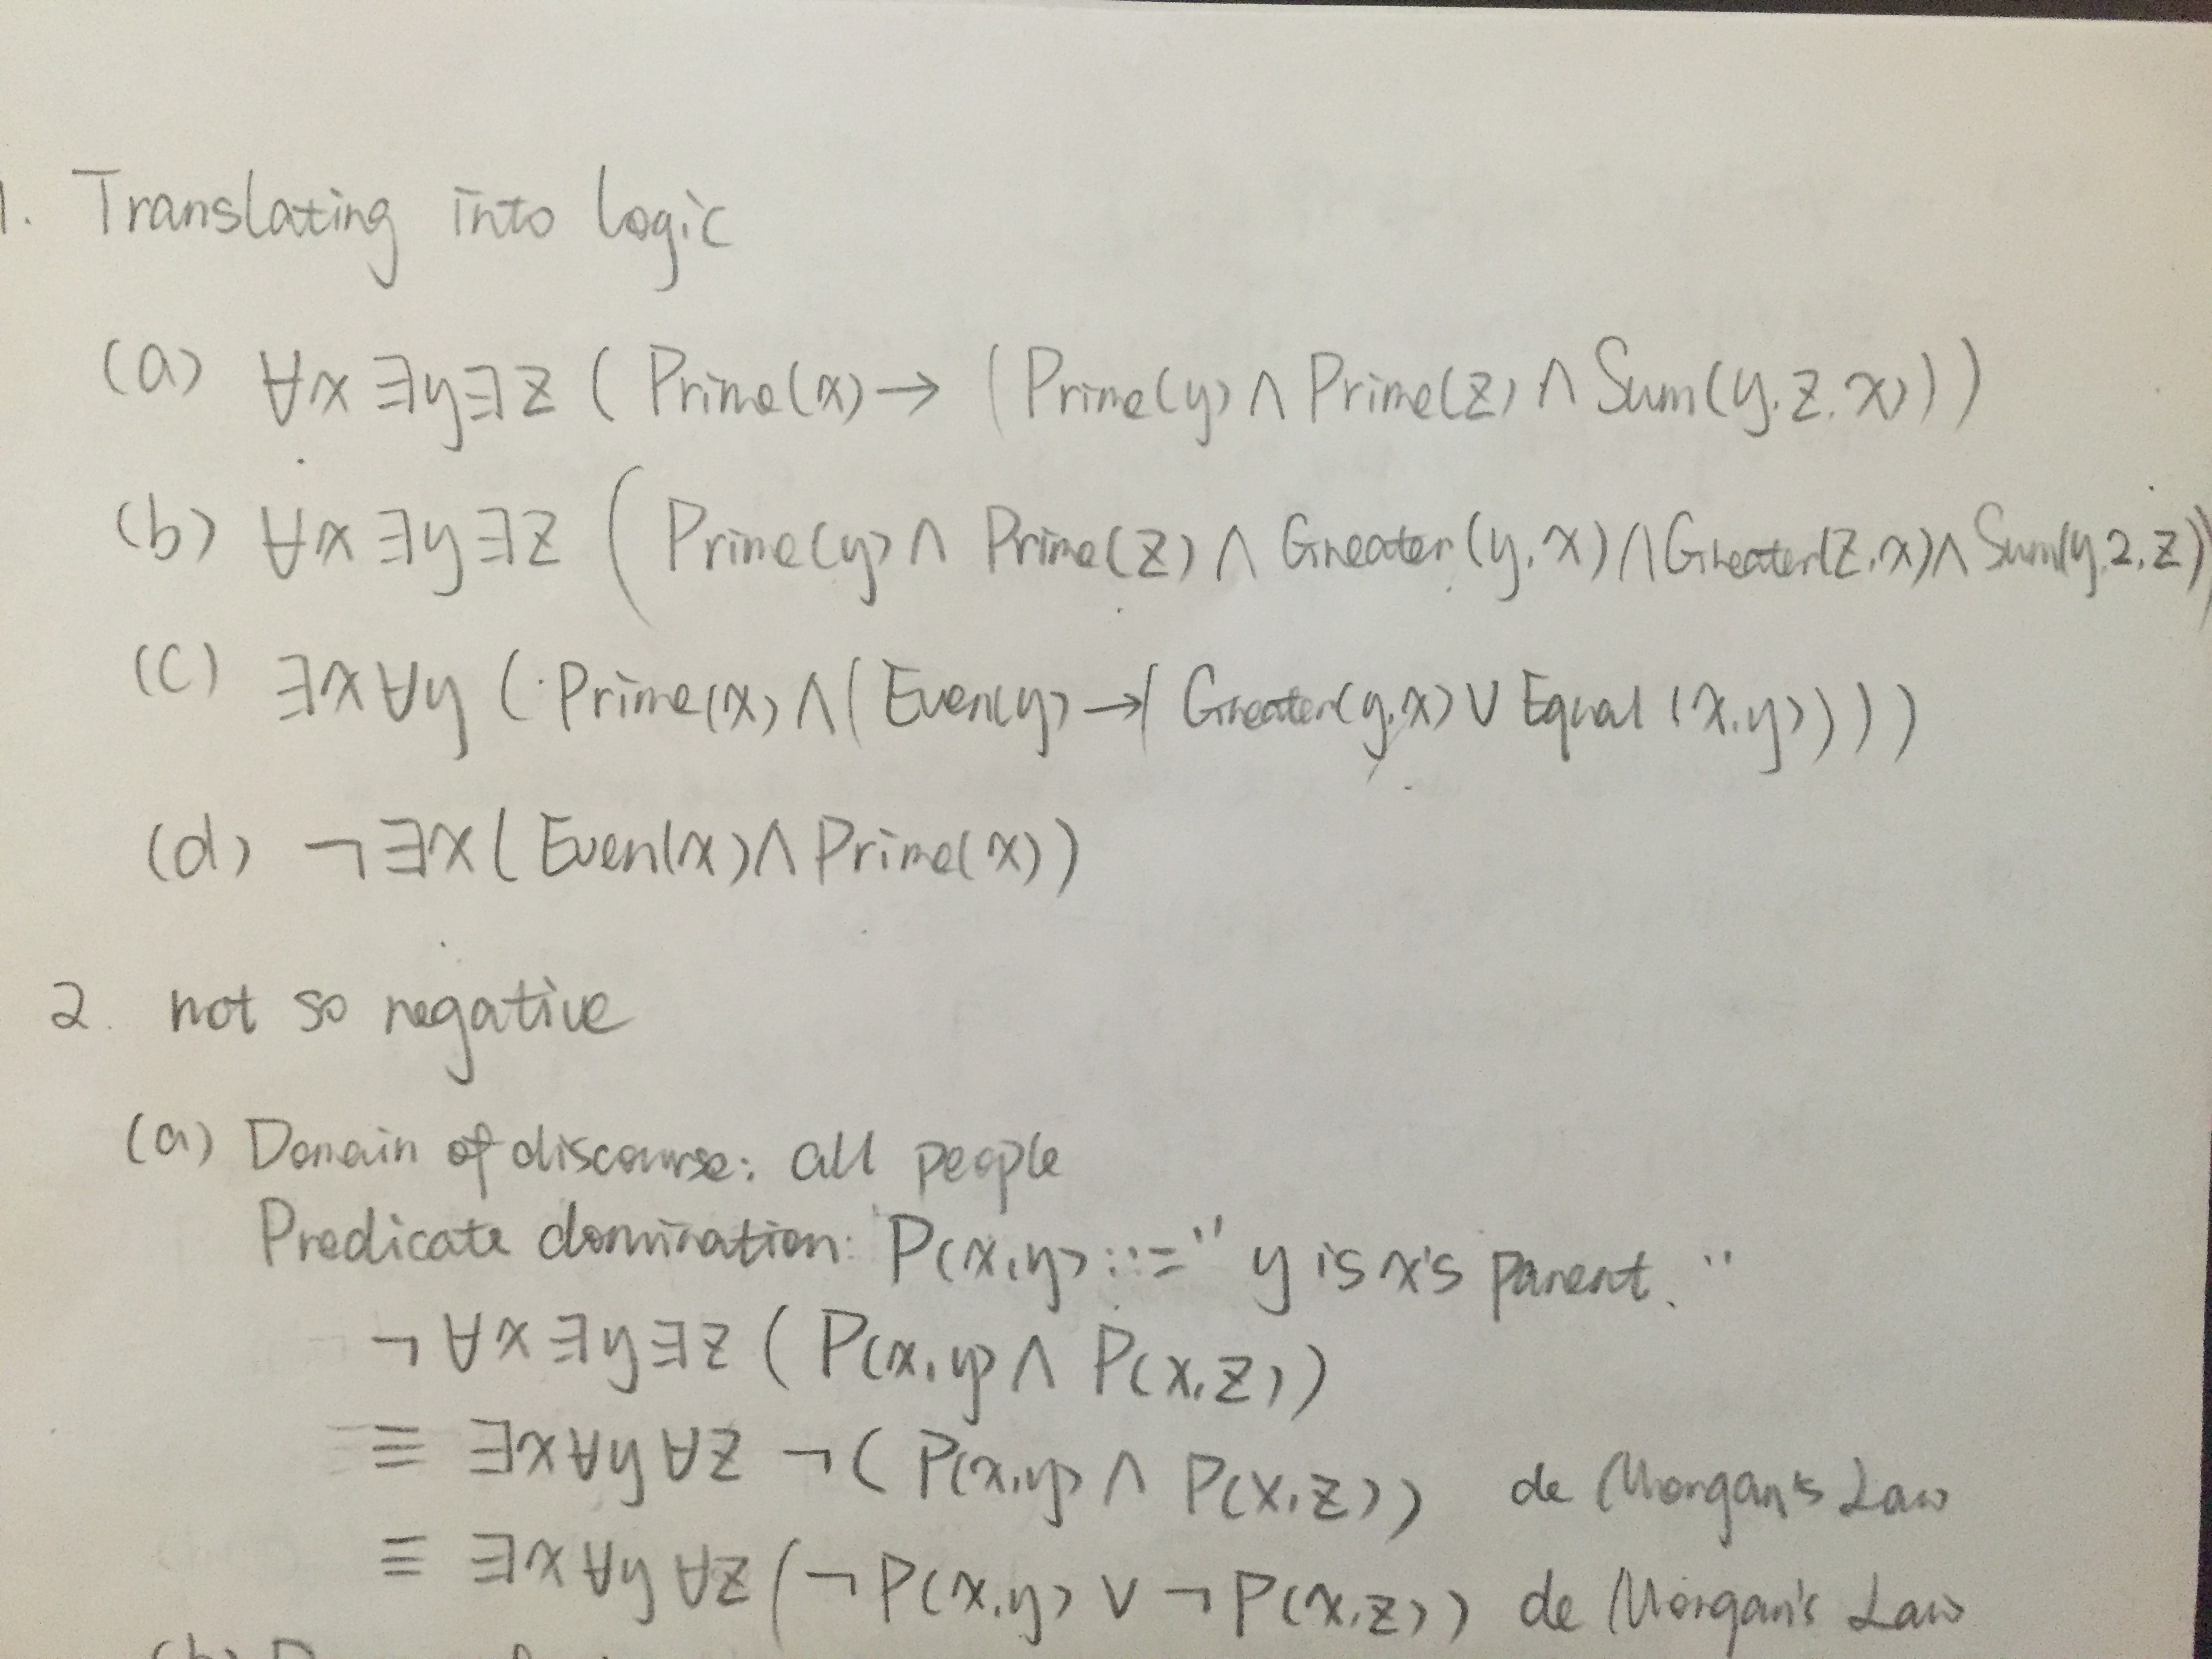 1. Translating into logic
(a) ∀x ∃y∃z ( Prime(x) → (Prime(y) ∧ Prime(z) ∧ Sum(y, z, x)))
(b) ∀x ∃y∃z ( Prime(y) ∧ Prime(z) ∧ Greater(y, x) ∧ Greater(z, x) ∧ Sum(y, 2, z))
(c) ∃x ∀y ( Prime(x) ∧ (Even(y) → ( Greater(y, x) ∨ Equal (x, y))))
(d) ¬∃x ( Even(x) ∧ Prime(x))
2. not so negative
(a) Domain of discourse: all people
Predicate domination: P(x, y) ::= " y is x's parent. "
¬ ∀x ∃y ∃z ( P(x, y) ∧ P(x, z))
≡ ∃x ∀y ∀z ¬ ( P(x, y) ∧ P(x, z)) de Morgan's Law
≡ ∃x ∀y ∀z (¬ P(x, y) ∨ ¬ P(x, z)) de Morgan's Law